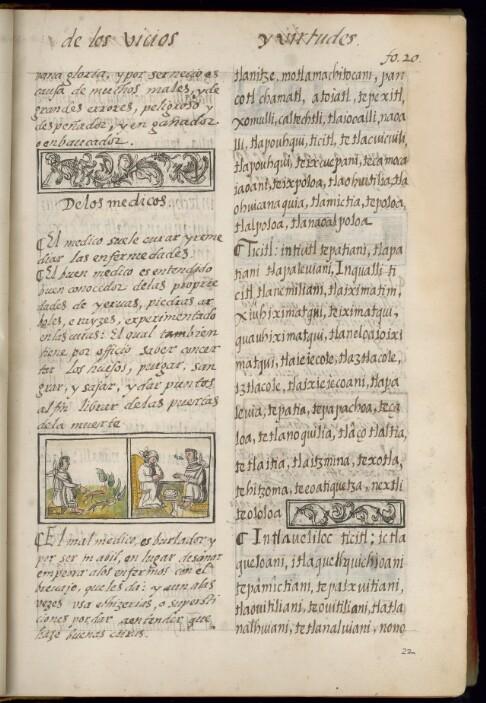 de los vicios
y virtudes
fo. 20.
vana gloria, y por ser necio es
causa de muchos males, y de
grandes errores, peligroso y
despeñador, y engañador
o enbaucador.
De los medicos.
¶ El medico suele curar y reme
diar las enfermedades
¶ El buen medico es entendido
buen conocedor de las proprie
dades de yeruas, piedras ar
boles, e rayzes, experimentado
en las curas: El qual tambien
tiene por officio saber concer
tar los huesos, purgar, san
grar, y sajar, y dar puntos
al fin librar de las puertas
de la muerte
¶ El mal medico, es burlador y
por ser inabil, en lugar de sanar
empeora a los enfermos con el
breuajo, que les da: y aun a las
vezes usa echizerias, o supersti
ciones por dar a entender que
haze buenas curas.
tlanitze, motlamachitocani, pan
cotl chamatl, atoiatl, tepexitl,
xomulli, caltechtli, tlaiooalli, naoa
lli, tlapouhqui, ticitl, tetlacuicuili,
tlapouhqui, teixcuepani, tecamoca
iaoani, teixpoloa, tlaohuitilia, tla
ohuicanaquia, tlamictia, tepoloa,
tlalpoloa, tlanaoalpoloa
¶ Ticitl: in ticitl tepatiani, tlapa
tiani tlapaleuiani, In qualli ti
citl tlanemiliani, tlaiximatini,
xiuhiximatqui, teiximatqui,
quauhiximatqui, tlanelhoaioixi
matqui, tlaieiecole, tlaztlacole,
iztlacole, tlaixieiecoani, tlapa
leuia, tepatia, tepapachoa, teça
loa, tetlanoquilia, tlaçotlaltia,
tetlaitia, tlaitzmina, texotla,
tehitzoma, teeoatiquetza, nextli
teololoa
¶ In tlaueliloc ticitl: ictla
queloani, itlaquelhquichioani
tepâmictiani, tepaixuitiani,
tlaouitiliani, teouitiliani, tlatla
nalhuiani, tetlanaluiani, nono
22